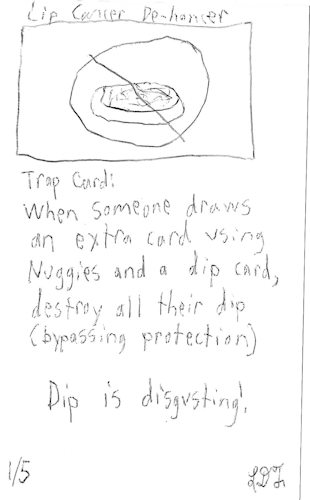 Lip Cancer De-hancer
Trap Card:
When someone draws
an extra card using
Nuggies and a dip card,
destroy all their dip
(bypassing protection)
Dip is disgusting!
1/5